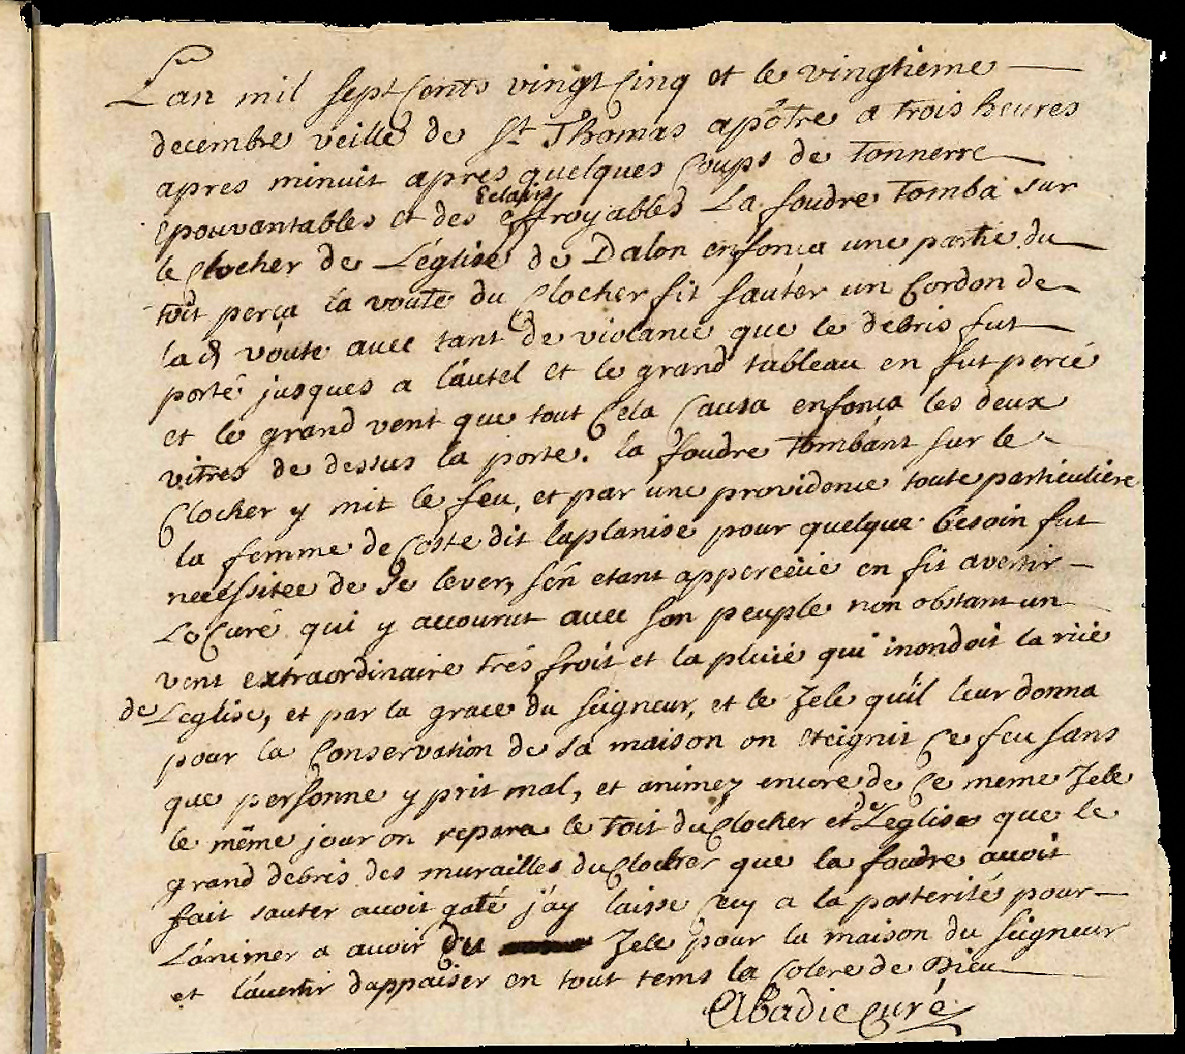 Lan mil sept Cents vingt Cinq et le vingtieme
decembre veille de St Thomas apôtre a trois heures
apres minuit apres quelques Coups de Tonnerre
epouvantables et des Eclairs effroyables La foudre Tomba sur
le Clocher de Léglise de Dalon enfonca une partie du
toit perça la voute du Clocher fit sauter un Cordon de
lad voute avec tant de violance que le debris fut
porté jusques a lautel et le grand tableau en fut percé
et le grand vent que tout Cela Causa enfonca les deux
vitres de dessus la porte. la foudre Tombant sur le
Clocher y mit le feu, et par une providence toute particulière
la femme de Coste dit laplanise pour quelque besoin fut
necéssitee de se lever, sén etant apperceüe en fit avertir
Le Curé qui y accourut avec son peuple non obstant un
vent extraordinaire trés froit et la pluïe qui inondoit la rüe
de Leglise, et par la grace du Seigneur, et le Zele quil leur donna
pour la Conservation de sa maison on eteignit Ce feu sans
que personne y prit mal, et animez encore de Ce meme Zele
le même jour on repara le toit du Clocher et de Leglise que le
grand debris des murailles du Clocher que la foudre avoit
fait sauter avoit gaté j'ay laisse Cecy a la posterité pour
Lánimer a avoir du Zele pour la maison du Seigneur
et lavertir dappaiser en tout tems la Colere de Dieu
Abadie Curé